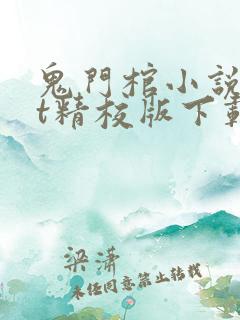 鬼門棺小說
t精校版下載
梁潇
未经同意禁止转载